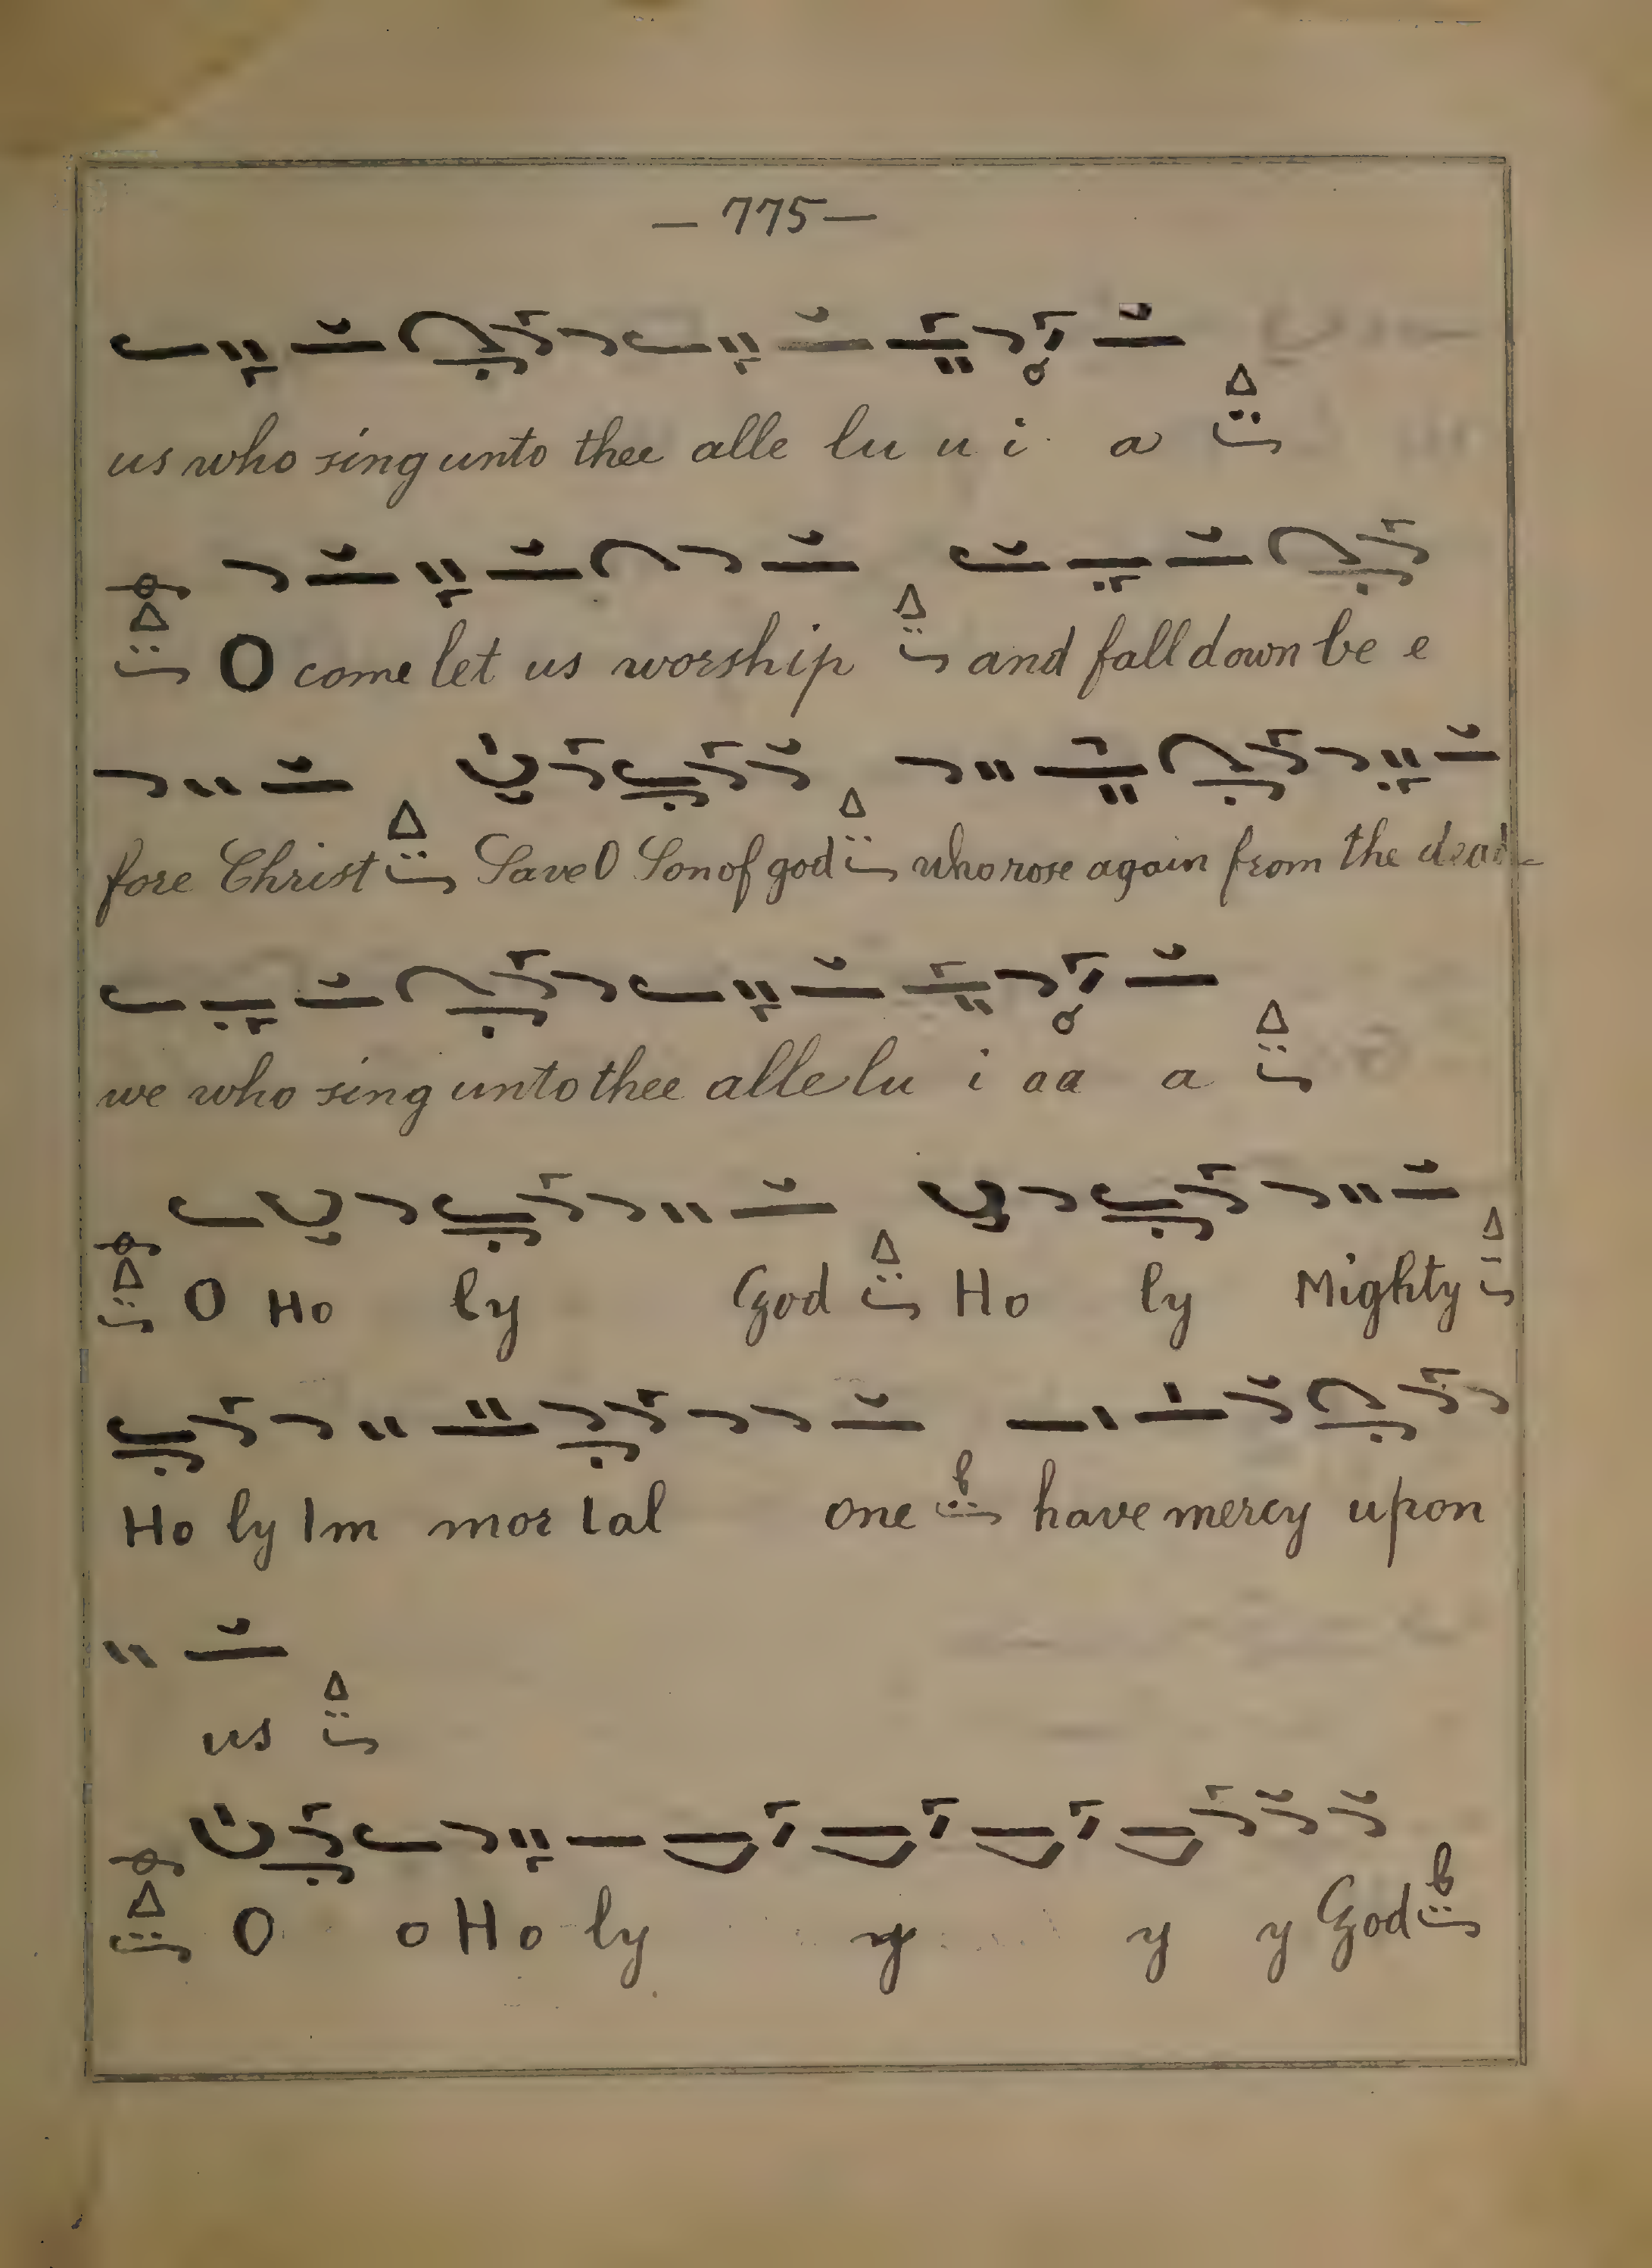 — 775 —
us who sing unto thee alle lu u i a
O come let us worship and fall down be e
fore Christ Save O Son of god who rose again from the dead
we who sing unto thee alle lu i a a a
O Ho ly God Ho ly Mighty
Ho ly Im mor tal one have mercy upon
us
O o Ho ly y y y God